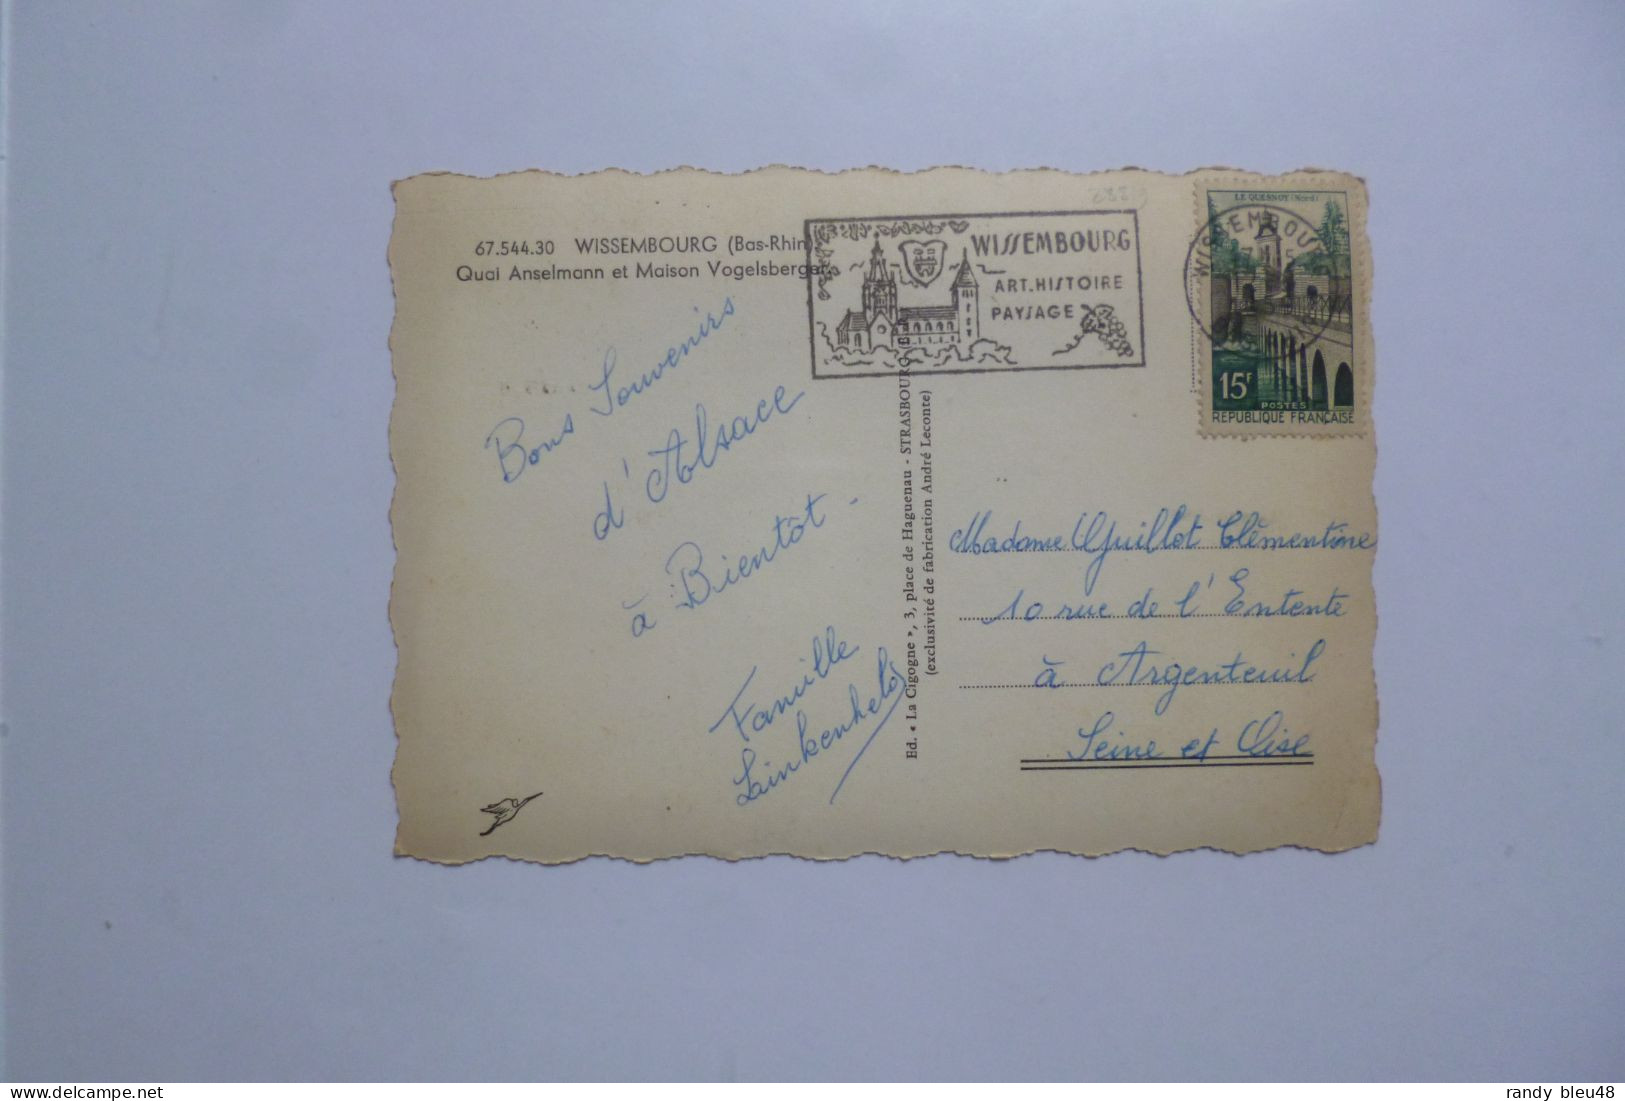 67.544.30 WISSEMBOURG (Bas-Rhin)
Quai Anselmann et Maison Vogelsberger
WISSEMBOURG
ART.HISTOIRE
PAYSAGE
WISSEMBOURG
LE QUESNOY (Nord)
15F
POSTES
REPUBLIQUE FRANÇAISE
Bons Souvenirs
d'Alsace
à Bientôt -
Famille
Linkenheld
Ed. « La Cigogne », 3, place de Haguenau - STRASBOURG
(exclusivité de fabrication André Leconte)
Madame Guillot Clémentine
10 rue de l'Entente
à Argenteuil
Seine et Oise
randy bleu48